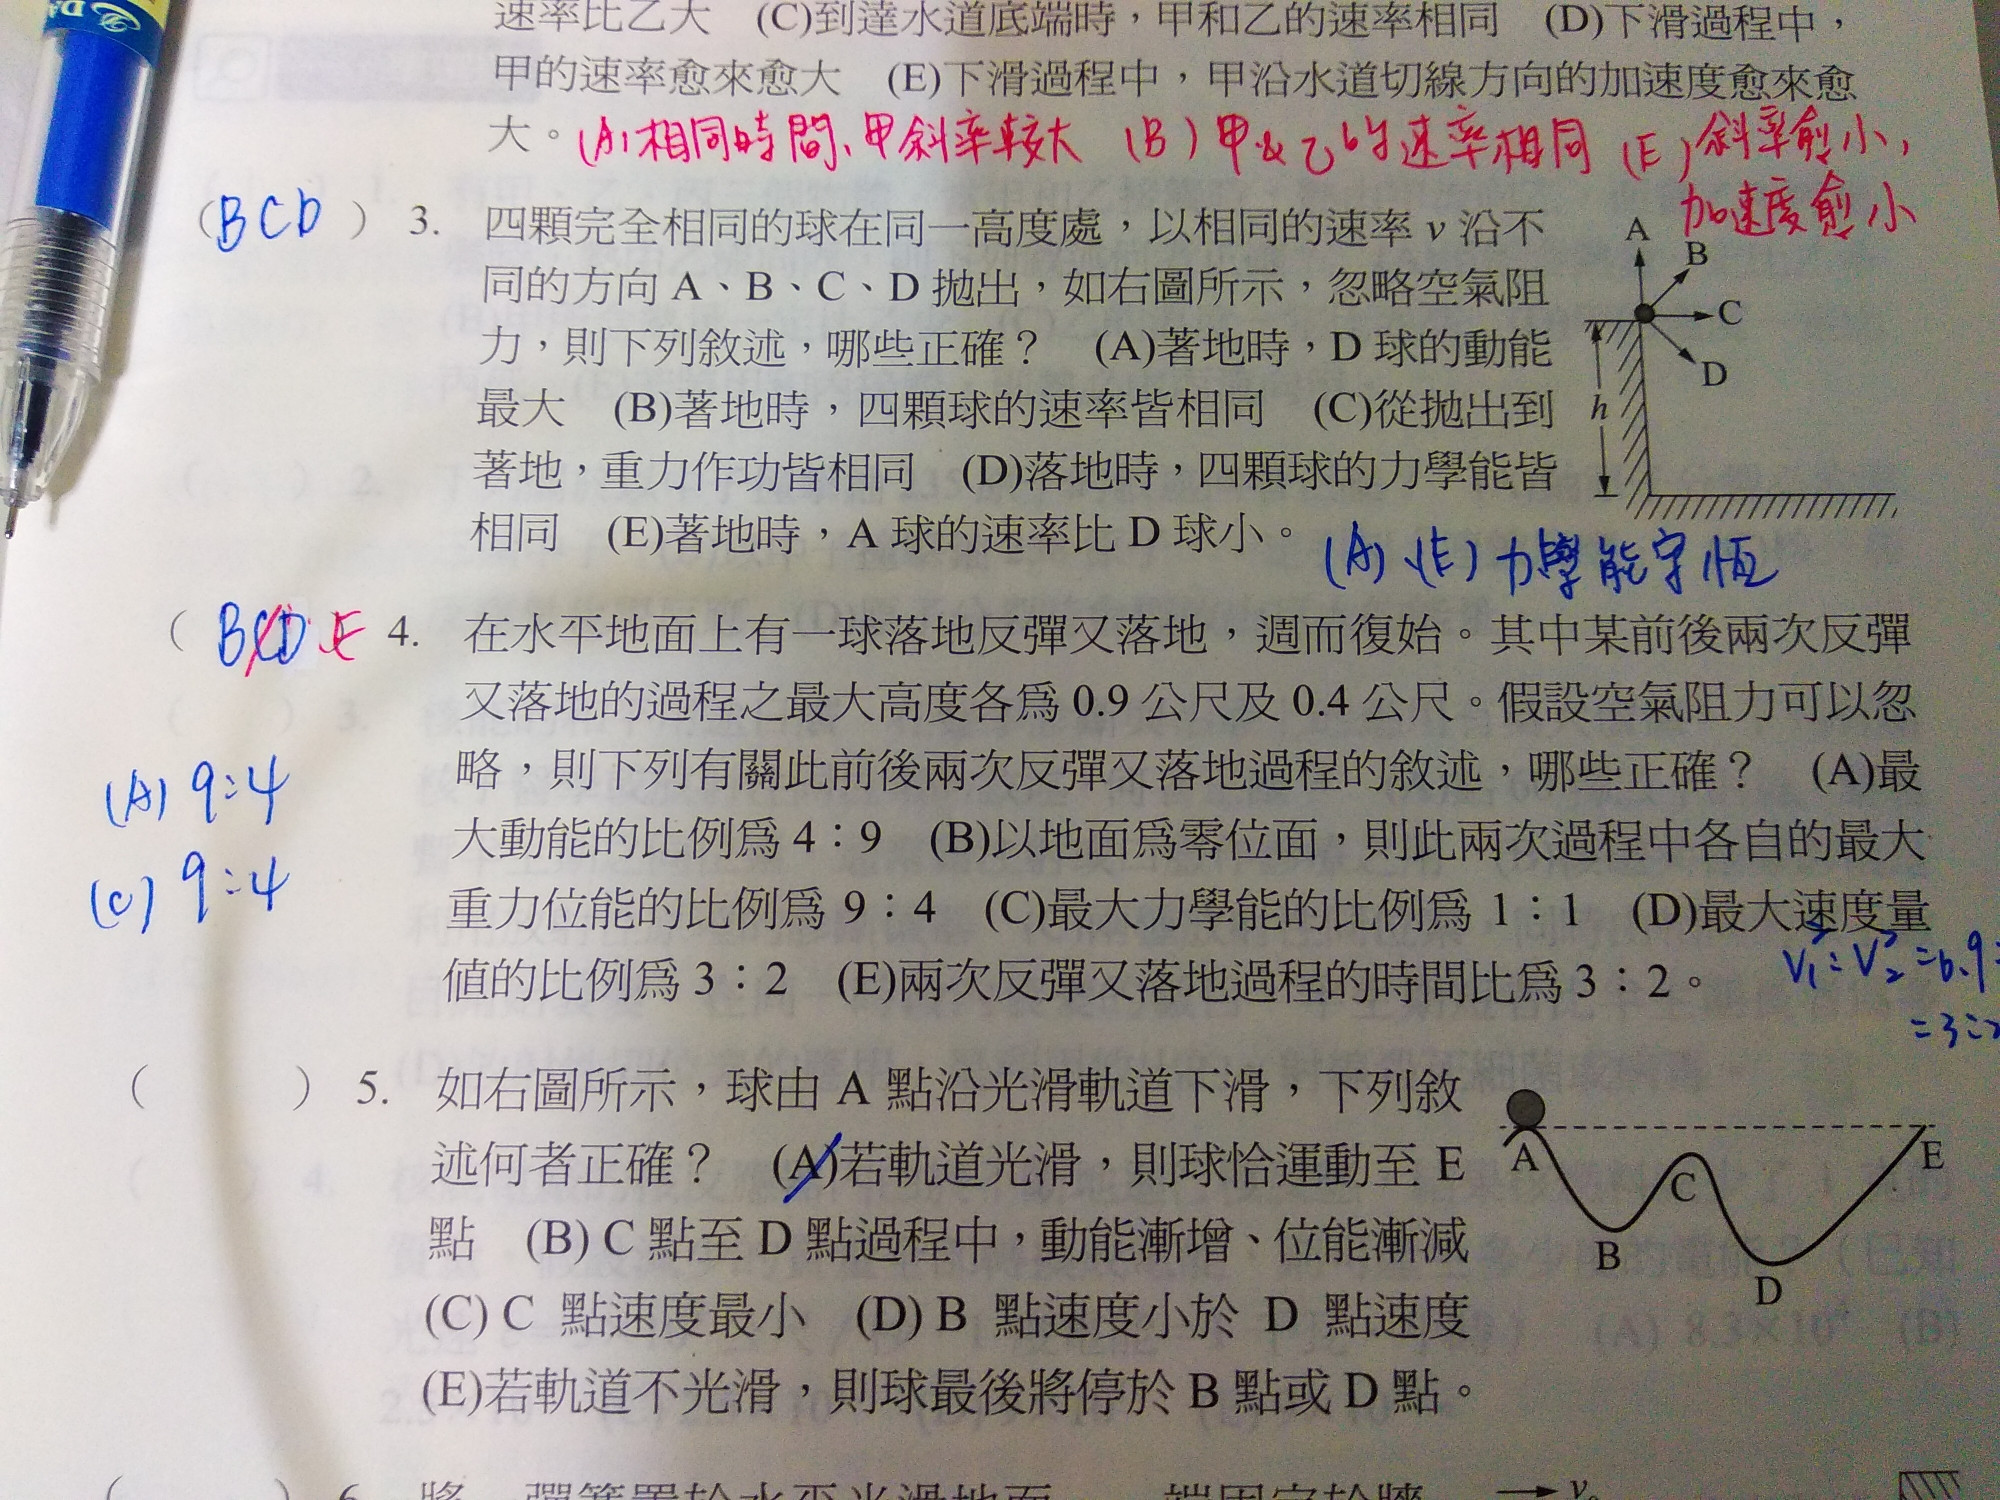 DA
速率比乙大 (C)到達水道底端時，甲和乙的速率相同 (D)下滑過程中，
甲的速率愈來愈大 (E)下滑過程中，甲沿水道切線方向的加速度愈來愈
大。(A)相同時間、甲斜率較大 (B)甲&乙的速率相同 (E)斜率愈小，
加速度愈小
(BCD) 3. 四顆完全相同的球在同一高度處，以相同的速率 v 沿不
同的方向 A、B、C、D 拋出，如右圖所示，忽略空氣阻
力，則下列敘述，哪些正確？ (A)著地時，D 球的動能
最大 (B)著地時，四顆球的速率皆相同 (C)從拋出到
著地，重力作功皆相同 (D)落地時，四顆球的力學能皆
相同 (E)著地時，A 球的速率比 D 球小。
A
B
C
D
h
(A)、(E) 力學能守恆
(BCD、E 4. 在水平地面上有一球落地反彈又落地，週而復始。其中某前後兩次反彈
又落地的過程之最大高度各為 0.9 公尺及 0.4 公尺。假設空氣阻力可以忽
略，則下列有關此前後兩次反彈又落地過程的敘述，哪些正確？ (A)最
大動能的比例為 4：9 (B)以地面為零位面，則此兩次過程中各自的最大
重力位能的比例為 9：4 (C)最大力學能的比例為 1：1 (D)最大速度量
值的比例為 3：2 (E)兩次反彈又落地過程的時間比為 3：2。
(A) 9:4
(C) 9:4
V₁²:V₂²=0.9:
=3:2
( ) 5. 如右圖所示，球由 A 點沿光滑軌道下滑，下列敘
述何者正確？ (A)若軌道光滑，則球恰運動至 E
點 (B) C 點至 D 點過程中，動能漸增、位能漸減
(C) C 點速度最小 (D) B 點速度小於 D 點速度
(E)若軌道不光滑，則球最後將停於 B 點或 D 點。
A
B
C
D
E
( ) 6. 將一彈簧置於水平光滑地面，一端固定於牆
v₀